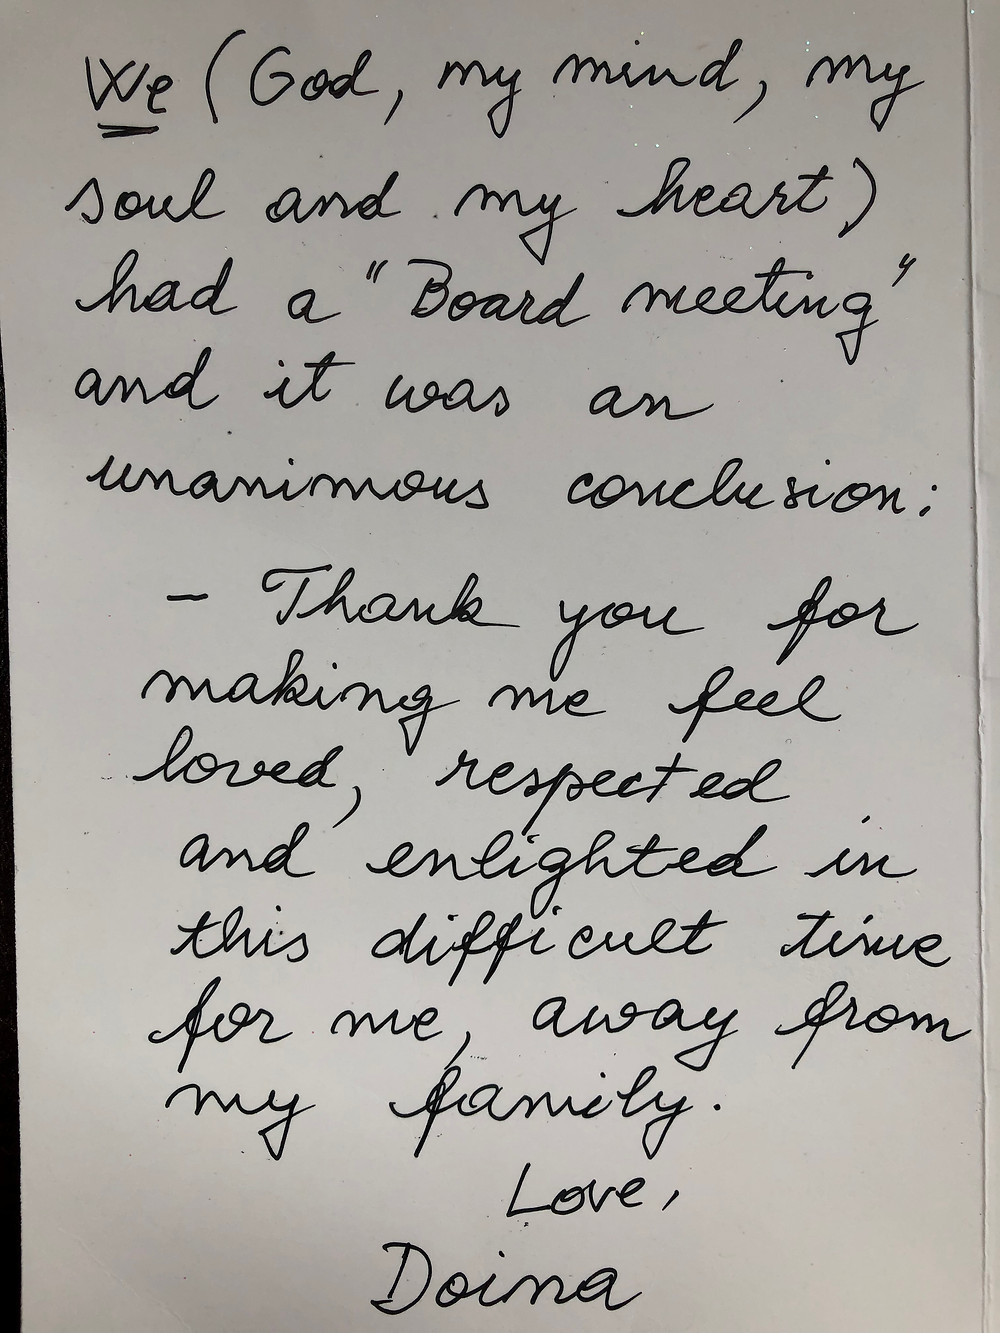 We (God, my mind, my
soul and my heart)
had a "Board meeting"
and it was an
unanimous conclusion:
- Thank you for
making me feel
loved, respected
and enlighted in
this difficult time
for me, away from
my family.
Love,
Doina